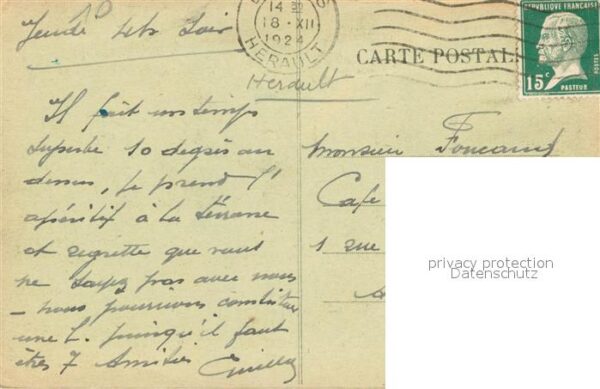 Jeudi 4h Soir
14
18 · XII
1924
HERAULT
Herault
CARTE POSTAL
REPUBLIQUE FRANÇAISE
POSTES
15c
PASTEUR
Il fait un temps
superbe 10 degrés au
dessus, je prend l'
apéritif à la terrasse
et regrette que vous
ne soyez pas avec nous
- nous pourrions constituer
une L. puisqu'il faut
être 7 Amitiés
Monsieur
Cafe
1 rue
privacy protection
Datenschutz